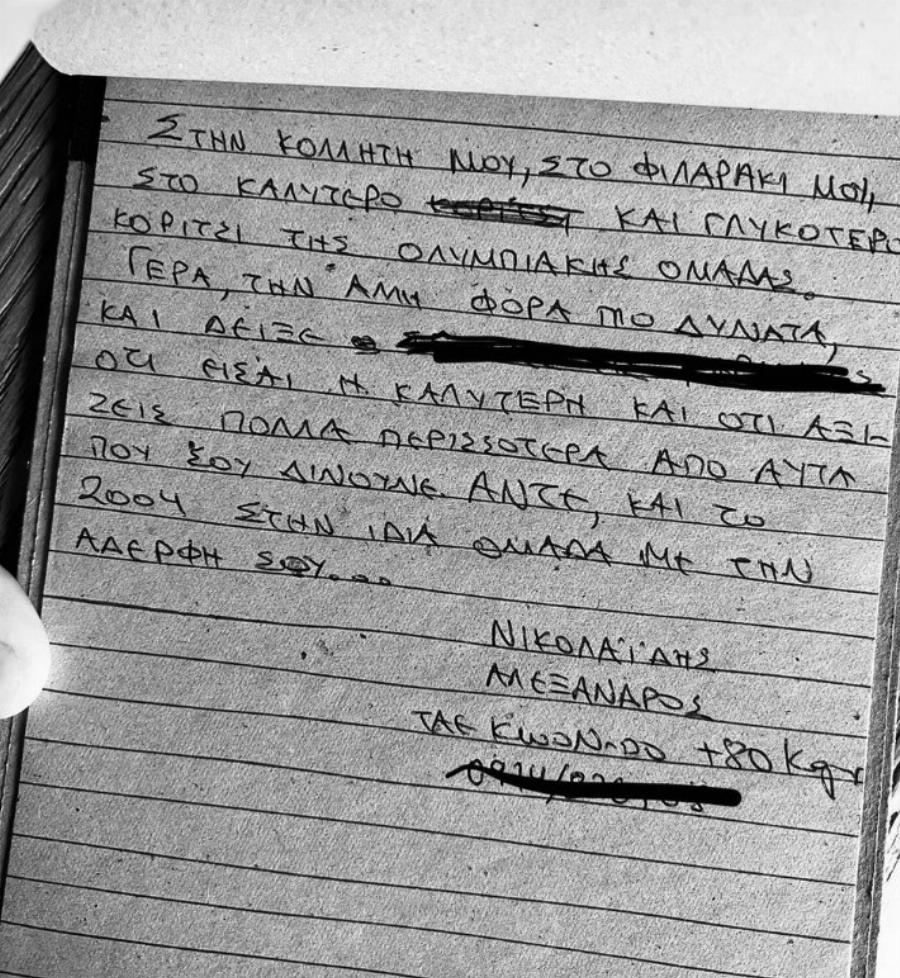 ΣΤΗΝ ΚΟΛΛΗΤΗ ΜΟΥ, ΣΤΟ ΦΙΛΑΡΑΚΙ ΜΟΥ,
ΣΤΟ ΚΑΛΥΤΕΡΟ ΚΑΙ ΓΛΥΚΟΤΕΡΟ
ΚΟΡΙΤΣΙ ΤΗΣ ΟΛΥΜΠΙΑΚΗΣ ΟΜΑΔΑΣ.
ΓΕΡΑ, ΤΗΝ ΑΛΛΗ ΦΟΡΑ ΠΙΟ ΔΥΝΑΤΑ,
ΚΑΙ ΔΕΙΞΕ
ΟΤΙ ΕΙΣΑΙ Η ΚΑΛΥΤΕΡΗ ΚΑΙ ΟΤΙ ΑΞΙ-
ΖΕΙΣ ΠΟΛΛΑ ΠΕΡΙΣΣΟΤΕΡΑ ΑΠΟ ΑΥΤΑ
ΠΟΥ ΣΟΥ ΔΙΝΟΥΝΕ. ΑΝΤΕ, ΚΑΙ ΤΟ
2004 ΣΤΗΝ ΙΔΙΑ ΟΜΑΔΑ ΜΕ ΤΗΝ
ΑΔΕΡΦΗ ΣΟΥ....
ΝΙΚΟΛΑΪΔΗΣ
ΑΛΕΞΑΝΔΡΟΣ
TAE KWON-DO +80 Kgr